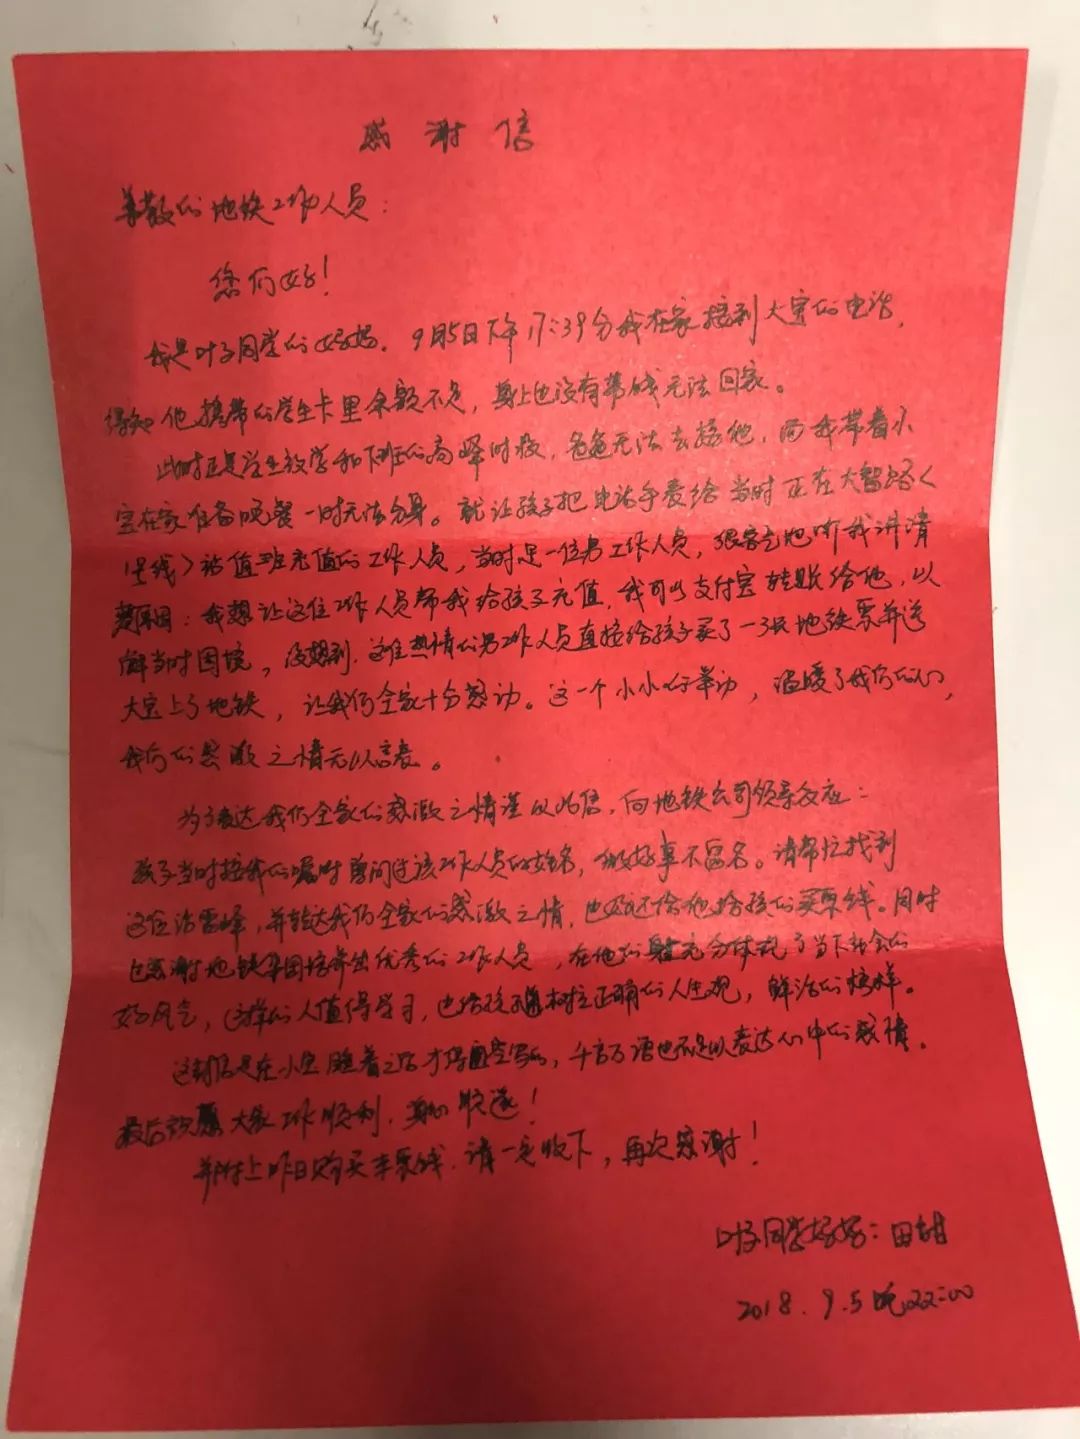 感谢信
尊敬的地铁工作人员：
您们好！
我是叶子同学的妈妈。9月5日下午17:39分我在家接到大宝的电话，
得知他携带的学生卡里余额不足，身上也没有带钱无法回家。
此时正是学生放学和下班的高峰时段，爸爸无法去接他，而我带着小
宝在家准备晚餐一时无法分身。就让孩子把电话手表给当时正在大智路〈
1号线〉站值班充值的工作人员，当时是一位男工作人员，很客气地听我讲清
原因：我想让这位工作人员帮我给孩子充值，我可以支付宝转账给他，以
解当时困境，没想到，这位热情的男工作人员直接给孩子买了一张地铁票并送
大宝上了地铁，让我们全家十分感动。这一个小小的举动，温暖了我们的心，
我们的感激之情无以言表。
为了表达我们全家的感激之情谨以此信，向地铁公司领导反应：
孩子当时按我的嘱咐曾问过该工作人员的姓名，做好事不留名。请帮忙找到
这位活雷锋，并转达我们全家的感激之情，也好还给他给孩子的买票钱。同时
也感谢地铁集团培养出优秀的工作人员，在他们身上充分体现了当下社会的
好风气，这样的人值得学习，也给孩子树立正确的人生观，鲜活的榜样。
这封信是在小宝睡着之后才得空写的，千言万语也不足以表达心中的感情。
最后祝愿大家工作顺利，身心愉逸！
并附上昨日购买车票钱，请一定收下，再次感谢！
叶子同学妈妈：田甜
2018.9.5晚22:00